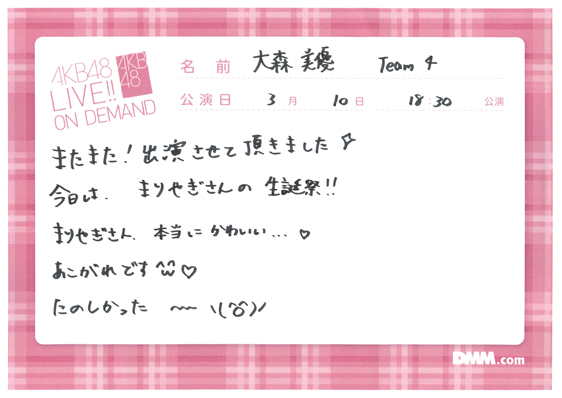 AKB48
LIVE!!
ON DEMAND
AKB
48
名前 大森美優 Team 4
公演日 3月 10日 18:30 公演
またまた！出演させて頂きました♪
今日は、まりやぎさんの生誕祭!!
まりやぎさん、本当にかわいい…♡
あこがれです ^^♡
たのしかった 〜〜 \(^o^)/
DMM.com